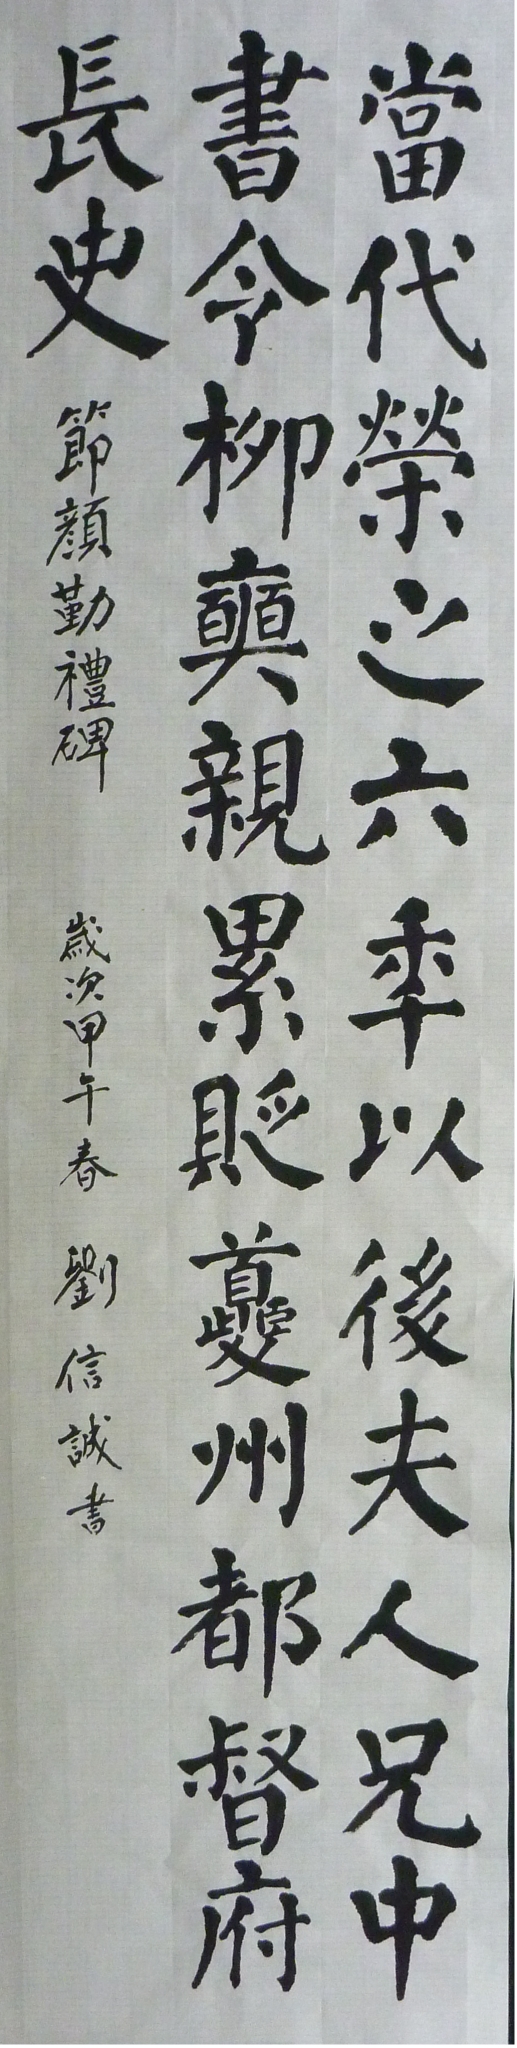 當代榮之六年以後夫人兄中
書令柳奭親累貶夔州都督府
長史
節顏勤禮碑
歲次甲午春 劉信誠書